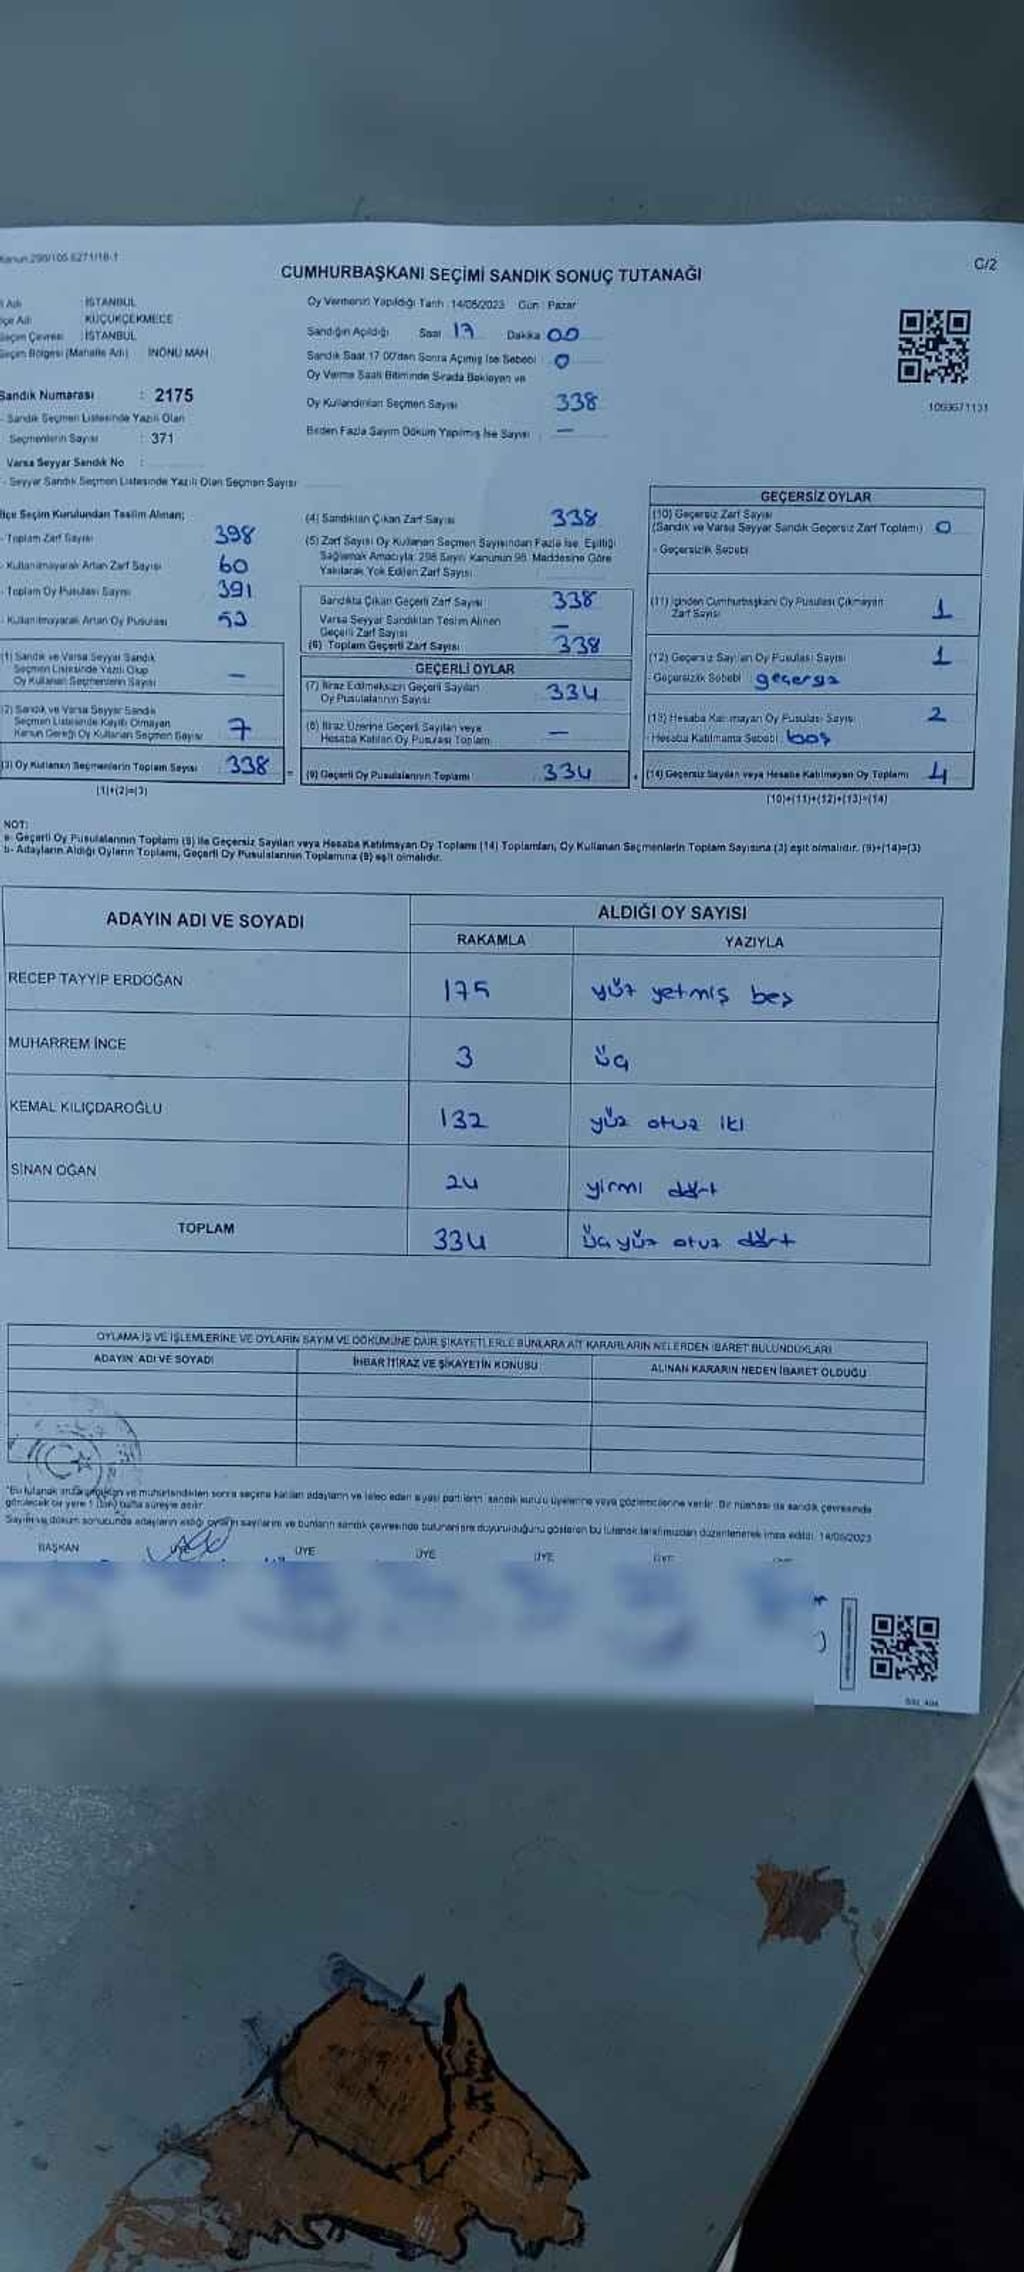 Kanun 298/105 6271/18-1
C/2
CUMHURBAŞKANI SEÇİMİ SANDIK SONUÇ TUTANAĞI
İSTANBUL
KÜÇÜKÇEKMECE
Seçim Çevresi : İSTANBUL
Seçim Bölgesi (Mahalle Adı) İNÖNÜ MAH.
Sandık Numarası : 2175
- Sandık Seçmen Listesinde Yazılı Olan
Seçmenlerin Sayısı : 371
Varsa Seyyar Sandık No :
- Seyyar Sandık Seçmen Listesinde Yazılı Olan Seçmen Sayısı
Oy Vermenin Yapıldığı Tarih : 14/05/2023 Gün : Pazar
Sandığın Açıldığı Saat 17 Dakika 00
Sandık Saat 17.00'den Sonra Açılmış İse Sebebi : 0
Oy Verme Saati Bitiminde Sırada Bekleyen ve
Oy Kullandırılan Seçmen Sayısı 338
Birden Fazla Sayım Döküm Yapılmış İse Sayısı : —
1093671131
İlçe Seçim Kurulundan Teslim Alınan;
- Toplam Zarf Sayısı 398
- Kullanılmayarak Artan Zarf Sayısı 60
- Toplam Oy Pusulası Sayısı 391
- Kullanılmayarak Artan Oy Pusulası 53
(1) Sandık ve Varsa Seyyar Sandık
Seçmen Listesinde Yazılı Olup
Oy Kullanan Seçmenlerin Sayısı —
(2) Sandık ve Varsa Seyyar Sandık
Seçmen Listesinde Kayıtlı Olmayan
Kanun Gereği Oy Kullanan Seçmen Sayısı 7
(3) Oy Kullanan Seçmenlerin Toplam Sayısı 338
(1)+(2)=(3)
(4) Sandıktan Çıkan Zarf Sayısı 338
(5) Zarf Sayısı Oy Kullanan Seçmen Sayısından Fazla İse, Eşitliği
Sağlamak Amacıyla 298 Sayılı Kanunun 98. Maddesine Göre
Yakılarak Yok Edilen Zarf Sayısı
Sandıkta Çıkan Geçerli Zarf Sayısı 338
Varsa Seyyar Sandıktan Teslim Alınan
Geçerli Zarf Sayısı —
(6) Toplam Geçerli Zarf Sayısı 338
GEÇERLİ OYLAR
(7) İtiraz Edilmeksizin Geçerli Sayılan
Oy Pusulalarının Sayısı 334
(8) İtiraz Üzerine Geçerli Sayılan veya
Hesaba Katılan Oy Pusulası Toplamı —
(9) Geçerli Oy Pusulalarının Toplamı 334
GEÇERSİZ OYLAR
(10) Geçersiz Zarf Sayısı
(Sandık ve Varsa Seyyar Sandık Geçersiz Zarf Toplamı) 0
- Geçersizlik Sebebi
(11) İçinden Cumhurbaşkanı Oy Pusulası Çıkmayan
Zarf Sayısı 1
(12) Geçersiz Sayılan Oy Pusulası Sayısı 1
- Geçersizlik Sebebi
(13) Hesaba Katılmayan Oy Pusulası Sayısı 2
- Hesaba Katılmama Sebebi boş
(14) Geçersiz Sayılan veya Hesaba Katılmayan Oy Toplamı 4
(10)+(11)+(12)+(13)=(14)
NOT:
a- Geçerli Oy Pusulalarının Toplamı (9) ile Geçersiz Sayılan veya Hesaba Katılmayan Oy Toplamı (14) Toplamları, Oy Kullanan Seçmenlerin Toplam Sayısına (3) eşit olmalıdır. (9)+(14)=(3)
b- Adayların Aldığı Oyların Toplamı, Geçerli Oy Pusulalarının Toplamına (9) eşit olmalıdır.
ADAYIN ADI VE SOYADI
ALDIĞI OY SAYISI
RAKAMLA YAZIYLA
RECEP TAYYİP ERDOĞAN 175 yüz yetmiş beş
MUHARREM İNCE 3 üç
KEMAL KILIÇDAROĞLU 132 yüz otuz iki
SİNAN OĞAN 24 yirmi dört
TOPLAM 334 üç yüz otuz dört
OYLAMA İŞ VE İŞLEMLERİNE VE OYLARIN SAYIM VE DÖKÜMÜNE DAİR ŞİKAYETLERLE BUNLARA AİT KARARLARIN NELERDEN İBARET BULUNDUKLARI
ADAYIN ADI VE SOYADI
İHBAR İTİRAZ VE ŞİKAYETİN KONUSU
ALINAN KARARIN NEDEN İBARET OLDUĞU
ve mühürlendikten sonra seçime katılan adayların ve talep eden siyasi partilerin sandık kurulu üyelerine veya gözlemcilerine verilir. Bir nüshası da sandık çevresinde
görülecek bir yere 1 (bir) hafta süreyle asılır.
Sayım ve döküm sonucunda adayların aldığı oyların sayılarını ve bunların sandık çevresinde bulunanlara duyurulduğunu gösteren bu tutanak tarafımızdan düzenlenerek imza edildi. 14/05/2023
BAŞKAN ÜYE ÜYE ÜYE ÜYE ÜYE